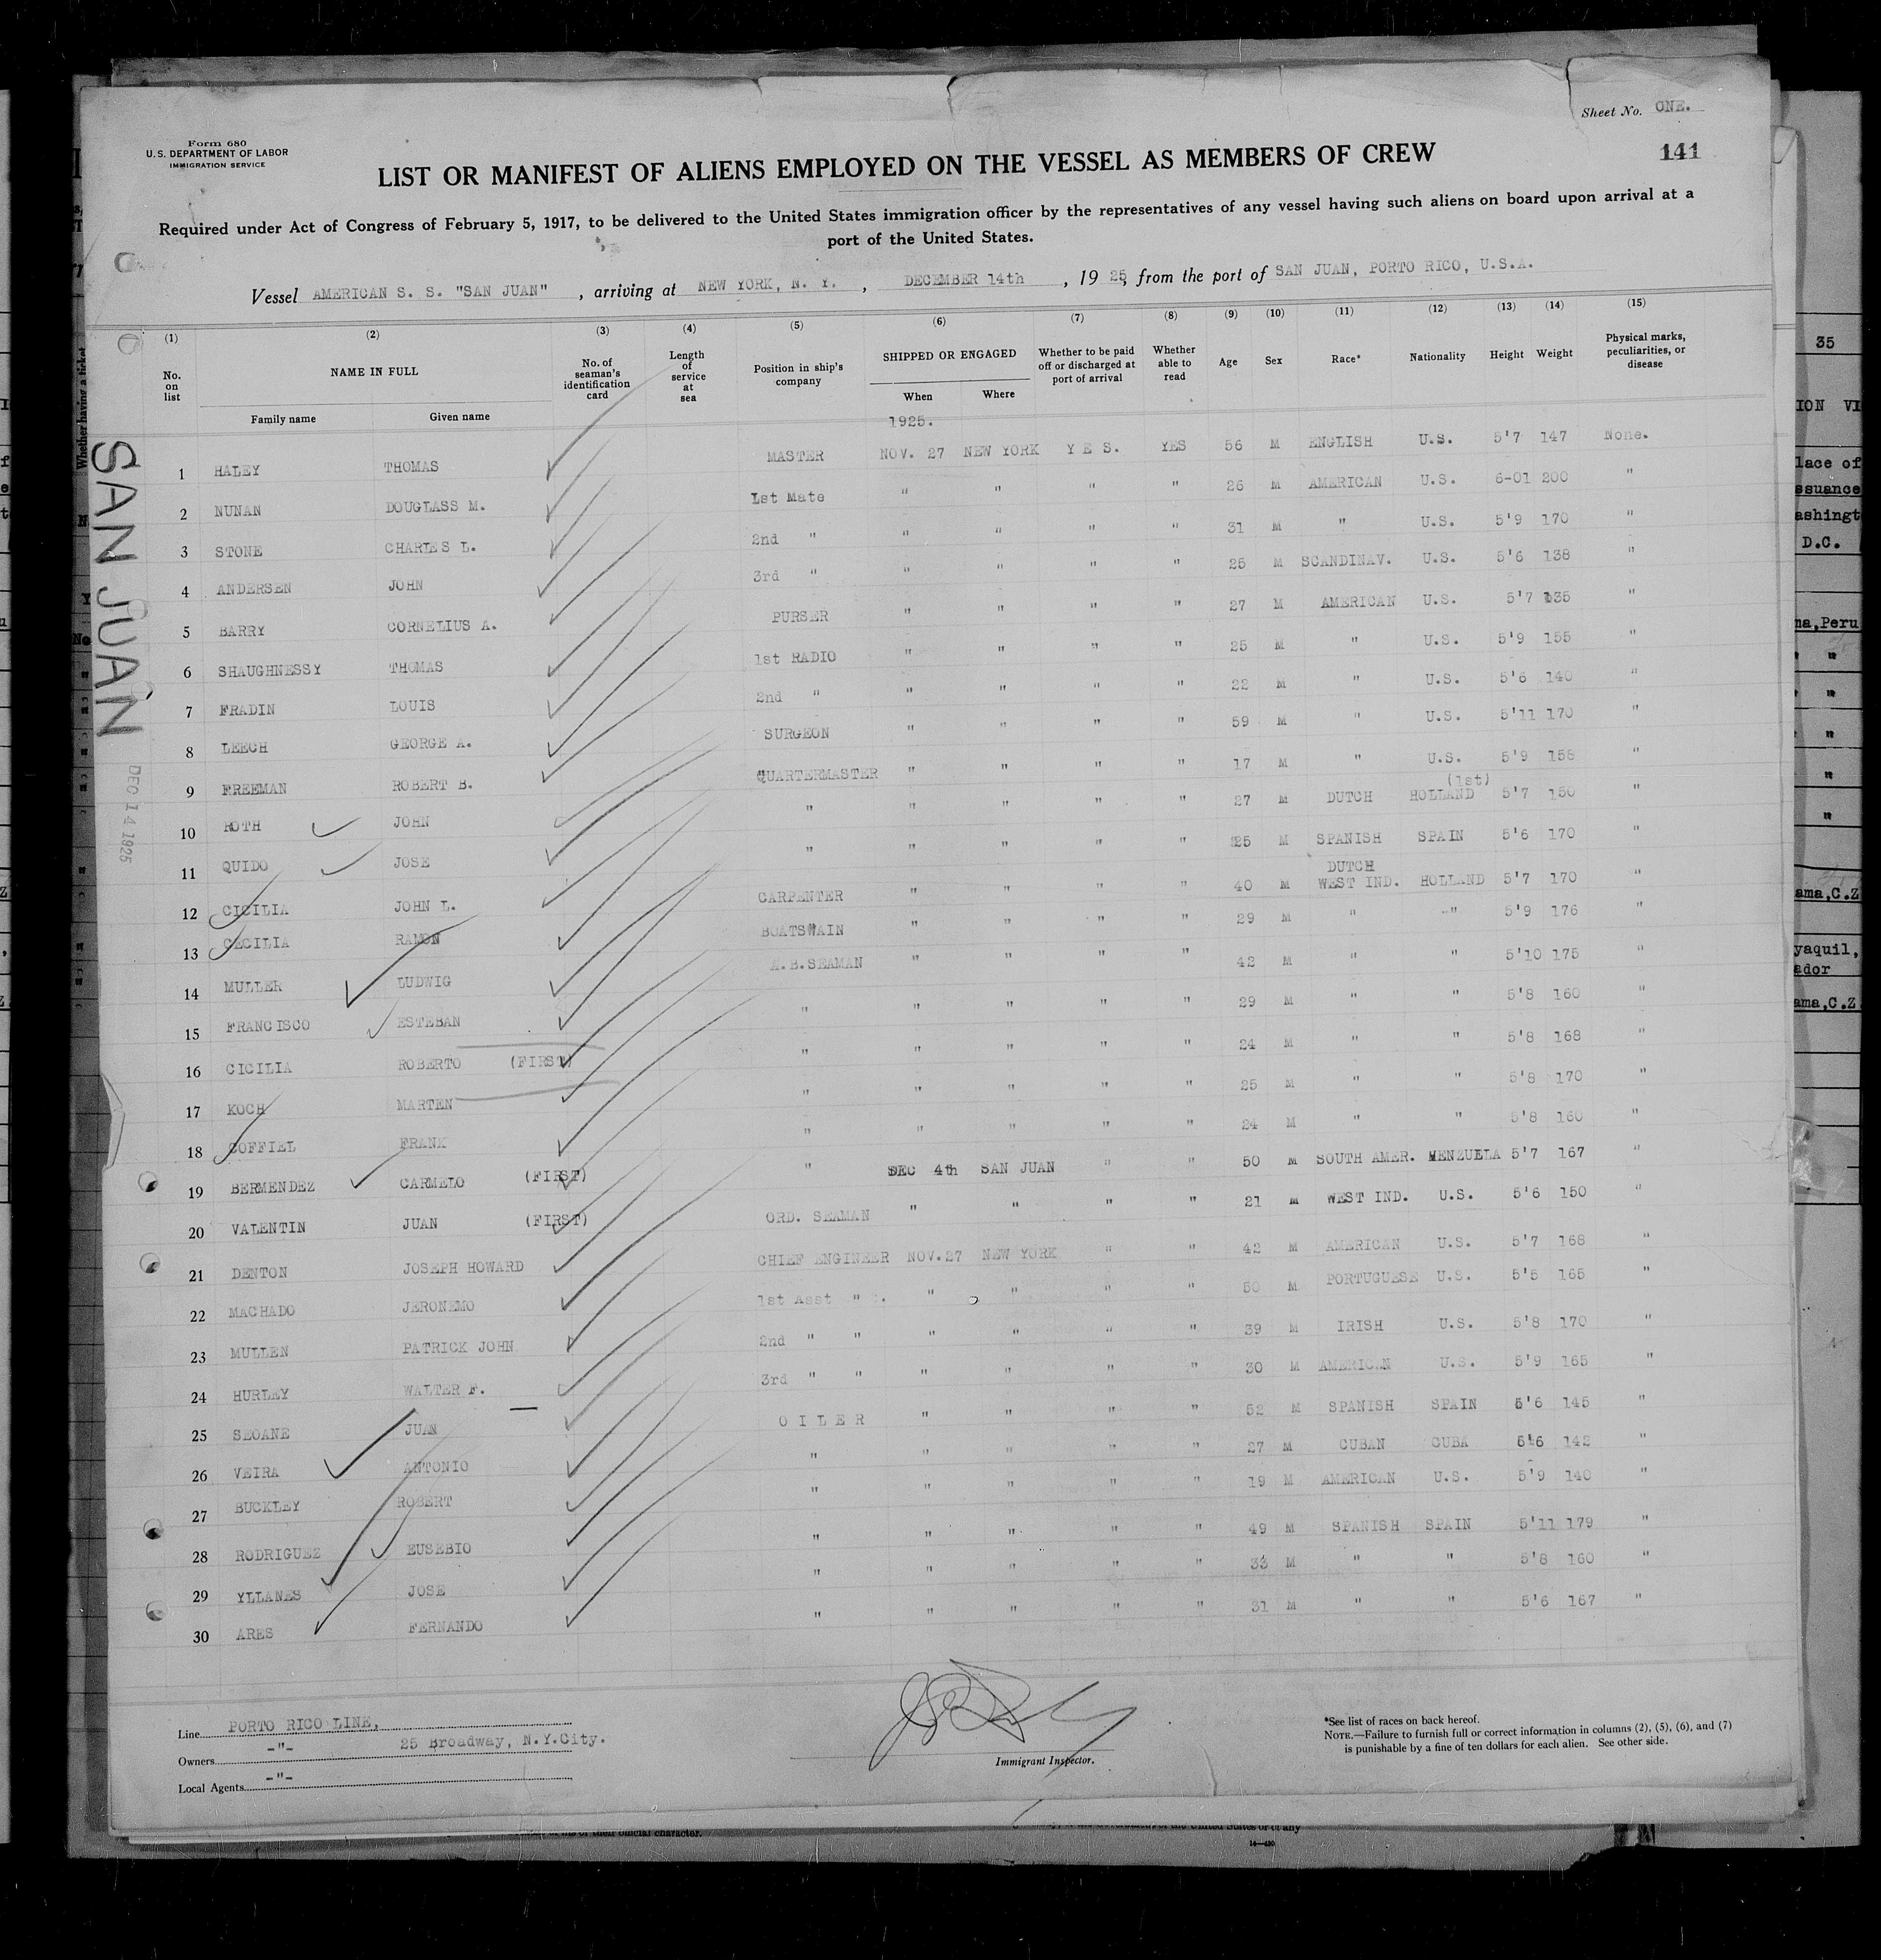 Sheet No. ONE.
Form 680
U.S. DEPARTMENT OF LABOR
IMMIGRATION SERVICE
141
LIST OR MANIFEST OF ALIENS EMPLOYED ON THE VESSEL AS MEMBERS OF CREW
Required under Act of Congress of February 5, 1917, to be delivered to the United States immigration officer by the representatives of any vessel having such aliens on board upon arrival at a
port of the United States.
Vessel AMERICAN S. S. "SAN JUAN" , arriving at NEW YORK, N. Y. , DECEMBER 14th , 19 25, from the port of SAN JUAN, PORTO RICO, U.S.A.
(1) (2) (3) (4) (5) (6) (7) (8) (9) (10) (11) (12) (13) (14) (15)
No. on list NAME IN FULL No. of seaman's identification card Length of service at sea Position in ship's company SHIPPED OR ENGAGED Whether to be paid off or discharged at port of arrival Whether able to read Age Sex Race* Nationality Height Weight Physical marks, peculiarities, or disease
Family name Given name When Where
1925.
1 HALEY THOMAS MASTER NOV. 27 NEW YORK Y E S. YES 56 M ENGLISH U.S. 5'7 147 None.
2 NUNAN DOUGLASS M. 1st Mate " " " " 26 M AMERICAN U.S. 6-01 200 "
3 STONE CHARLES L. 2nd " " " " " 31 M " U.S. 5'9 170 "
4 ANDERSEN JOHN 3rd " " " " " 25 M SCANDINAV. U.S. 5'6 138 "
5 BARRY CORNELIUS A. PURSER " " " " 27 M AMERICAN U.S. 5'7 135 "
6 SHAUGHNESSY THOMAS 1st RADIO " " " " 25 M " U.S. 5'9 155 "
7 FRADIN LOUIS 2nd " " " " " 22 M " U.S. 5'6 140 "
8 LEECH GEORGE A. SURGEON " " " " 59 M " U.S. 5'11 170 "
9 FREEMAN ROBERT B. QUARTERMASTER " " " " 17 M " U.S. 5'9 158 "
10 ROTH JOHN " " " " " 27 M DUTCH (1st) HOLLAND 5'7 150 "
11 QUIDO JOSE " " " " " 25 M SPANISH SPAIN 5'6 170 "
12 CICILIA JOHN L. CARPENTER " " " " 40 M DUTCH WEST IND. HOLLAND 5'7 170 "
13 CECILIA RAMON BOATSWAIN " " " " 29 M " -"- 5'9 176 "
14 MULLER LUDWIG A.B.SEAMAN " " " " 42 M " " 5'10 175 "
15 FRANCISCO ESTEBAN " " " " " 29 M " " 5'8 160 "
16 CICILIA ROBERTO (FIRST) " " " " " 24 M " " 5'8 168 "
17 KOCH MARTEN " " " " " 25 M " " 5'8 170 "
18 COFFIEL FRANK " " " " " 24 M " " 5'8 160 "
19 BERMENDEZ CARMELO (FIRST) " DEC 4th SAN JUAN " " 50 M SOUTH AMER. VENZUELA 5'7 167 "
20 VALENTIN JUAN (FIRST) ORD. SEAMAN " " " " 21 M WEST IND. U.S. 5'6 150 "
21 DENTON JOSEPH HOWARD CHIEF ENGINEER NOV.27 NEW YORK " " 42 M AMERICAN U.S. 5'7 168 "
22 MACHADO JERONEMO 1st Asst " " " " " 50 M PORTUGUESE U.S. 5'5 165 "
23 MULLEN PATRICK JOHN 2nd " " " " " " 39 M IRISH U.S. 5'8 170 "
24 HURLEY WALTER F. 3rd " " " " " " 30 M AMERICAN U.S. 5'9 165 "
25 SEOANE JUAN O I L E R " " " " 52 M SPANISH SPAIN 5'6 145 "
26 VEIRA ANTONIO " " " " " 27 M CUBAN CUBA 5'6 142 "
27 BUCKLEY ROBERT " " " " " 19 M AMERICAN U.S. 5'9 140 "
28 RODRIGUEZ EUSEBIO " " " " " 49 M SPANISH SPAIN 5'11 179 "
29 YLLANES JOSE " " " " " 33 M " " 5'8 160 "
30 ARES FERNANDO " " " " " 31 M " " 5'6 167 "
SAN JUAN
DEC 14 1925
Line PORTO RICO LINE,
Owners -"- 25 Broadway, N.Y.City.
Local Agents -"-
Immigrant Inspector.
*See list of races on back hereof.
NOTE.—Failure to furnish full or correct information in columns (2), (5), (6), and (7)
is punishable by a fine of ten dollars for each alien. See other side.
35
ION VI
lace of
ssuance
ashingt
D.C.
ma,Peru
ama,C.Z
yaquil,
ador
ama,C.Z
Whether having a ticket
of their official character.
14—430